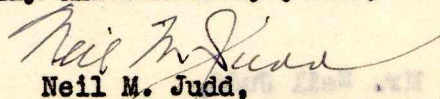 Neil M. Judd
Neil M. Judd,